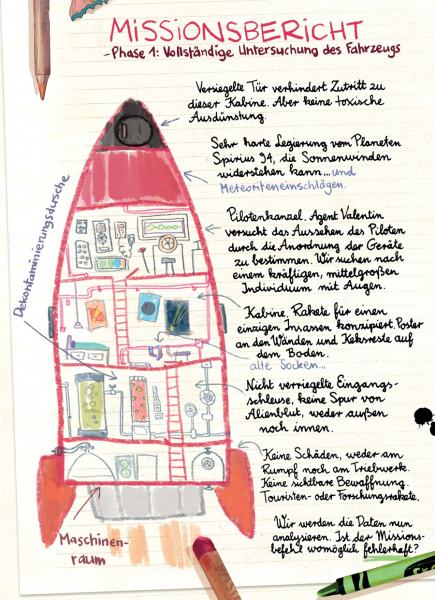 MISSIONSBERICHT
-Phase 1: Vollständige Untersuchung des Fahrzeugs
Versiegelte Tür verhindert Zutritt zu
dieser Kabine. Aber keine toxische
Ausdünstung.
Sehr harte Legierung vom Planeten
Spirius 94, die Sonnenwinden
widerstehen kann... und
Meteoriteneinschlägen.
Dekontaminierungsdusche
Pilotenkanzel. Agent Valentin
versucht das Aussehen des Piloten
durch die Anordnung der Geräte
zu bestimmen. Wir suchen nach
einem kräftigen, mittelgroßen
Individuum mit Augen.
Kabine, Rakete für einen
einzigen Insassen konzipiert. Poster
an den Wänden und Keksreste auf
dem Boden.
alte Socken...
Nicht verriegelte Eingangs-
schleuse, keine Spur von
Alienblut, weder außen
noch innen.
Keine Schäden, weder am
Rumpf noch am Triebwerk.
Keine sichtbare Bewaffnung.
Touristen- oder Forschungsrakete.
Maschinen-
raum
Wir werden die Daten nun
analysieren. Ist der Missions-
befehl womöglich fehlerhaft?